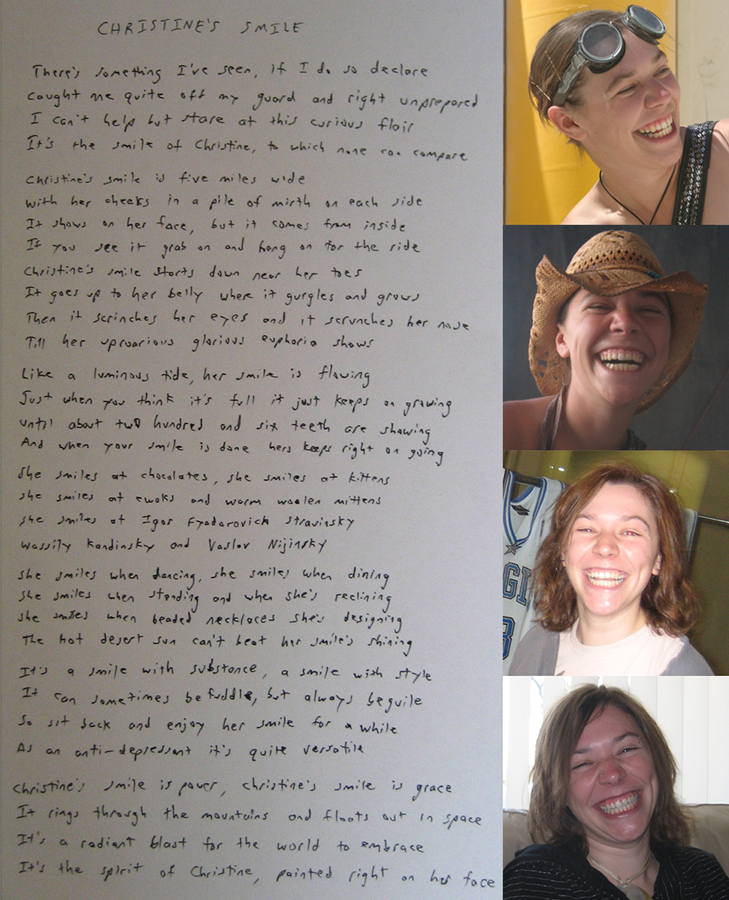 CHRISTINE'S SMILE
There's something I've seen, if I do so declare
Caught me quite off my guard and right unprepared
I can't help but stare at this curious flair
It's the smile of Christine, to which none can compare
Christine's smile is five miles wide
With her cheeks in a pile of mirth on each side
It shows on her face, but it comes from inside
If you see it grab on and hang on for the ride
Christine's smile starts down near her toes
It goes up to her belly where it gurgles and grows
Then it scrinches her eyes and it scrunches her nose
Till her uproarious glorious euphoria shows
Like a luminous tide, her smile is flowing
Just when you think it's full it just keeps on growing
Until about two hundred and six teeth are showing
And when your smile is done hers keeps right on going
She smiles at chocolates, she smiles at kittens
She smiles at ewoks and warm woolen mittens
She smiles at Igor Fyodorovich Stravinsky
Wassily Kandinsky and Vaslov Nijinsky
She smiles when dancing, she smiles when dining
She smiles when standing and when she's reclining
She smiles when beaded necklaces she's designing
The hot desert sun can't beat her smile's shining
It's a smile with substance, a smile with style
It can sometimes befuddle, but always beguile
So sit back and enjoy her smile for a while
As an anti-depressant it's quite versatile
Christine's smile is power, Christine's smile is grace
It rings through the mountains and floats out in space
It's a radiant blast for the world to embrace
It's the spirit of Christine, painted right on her face